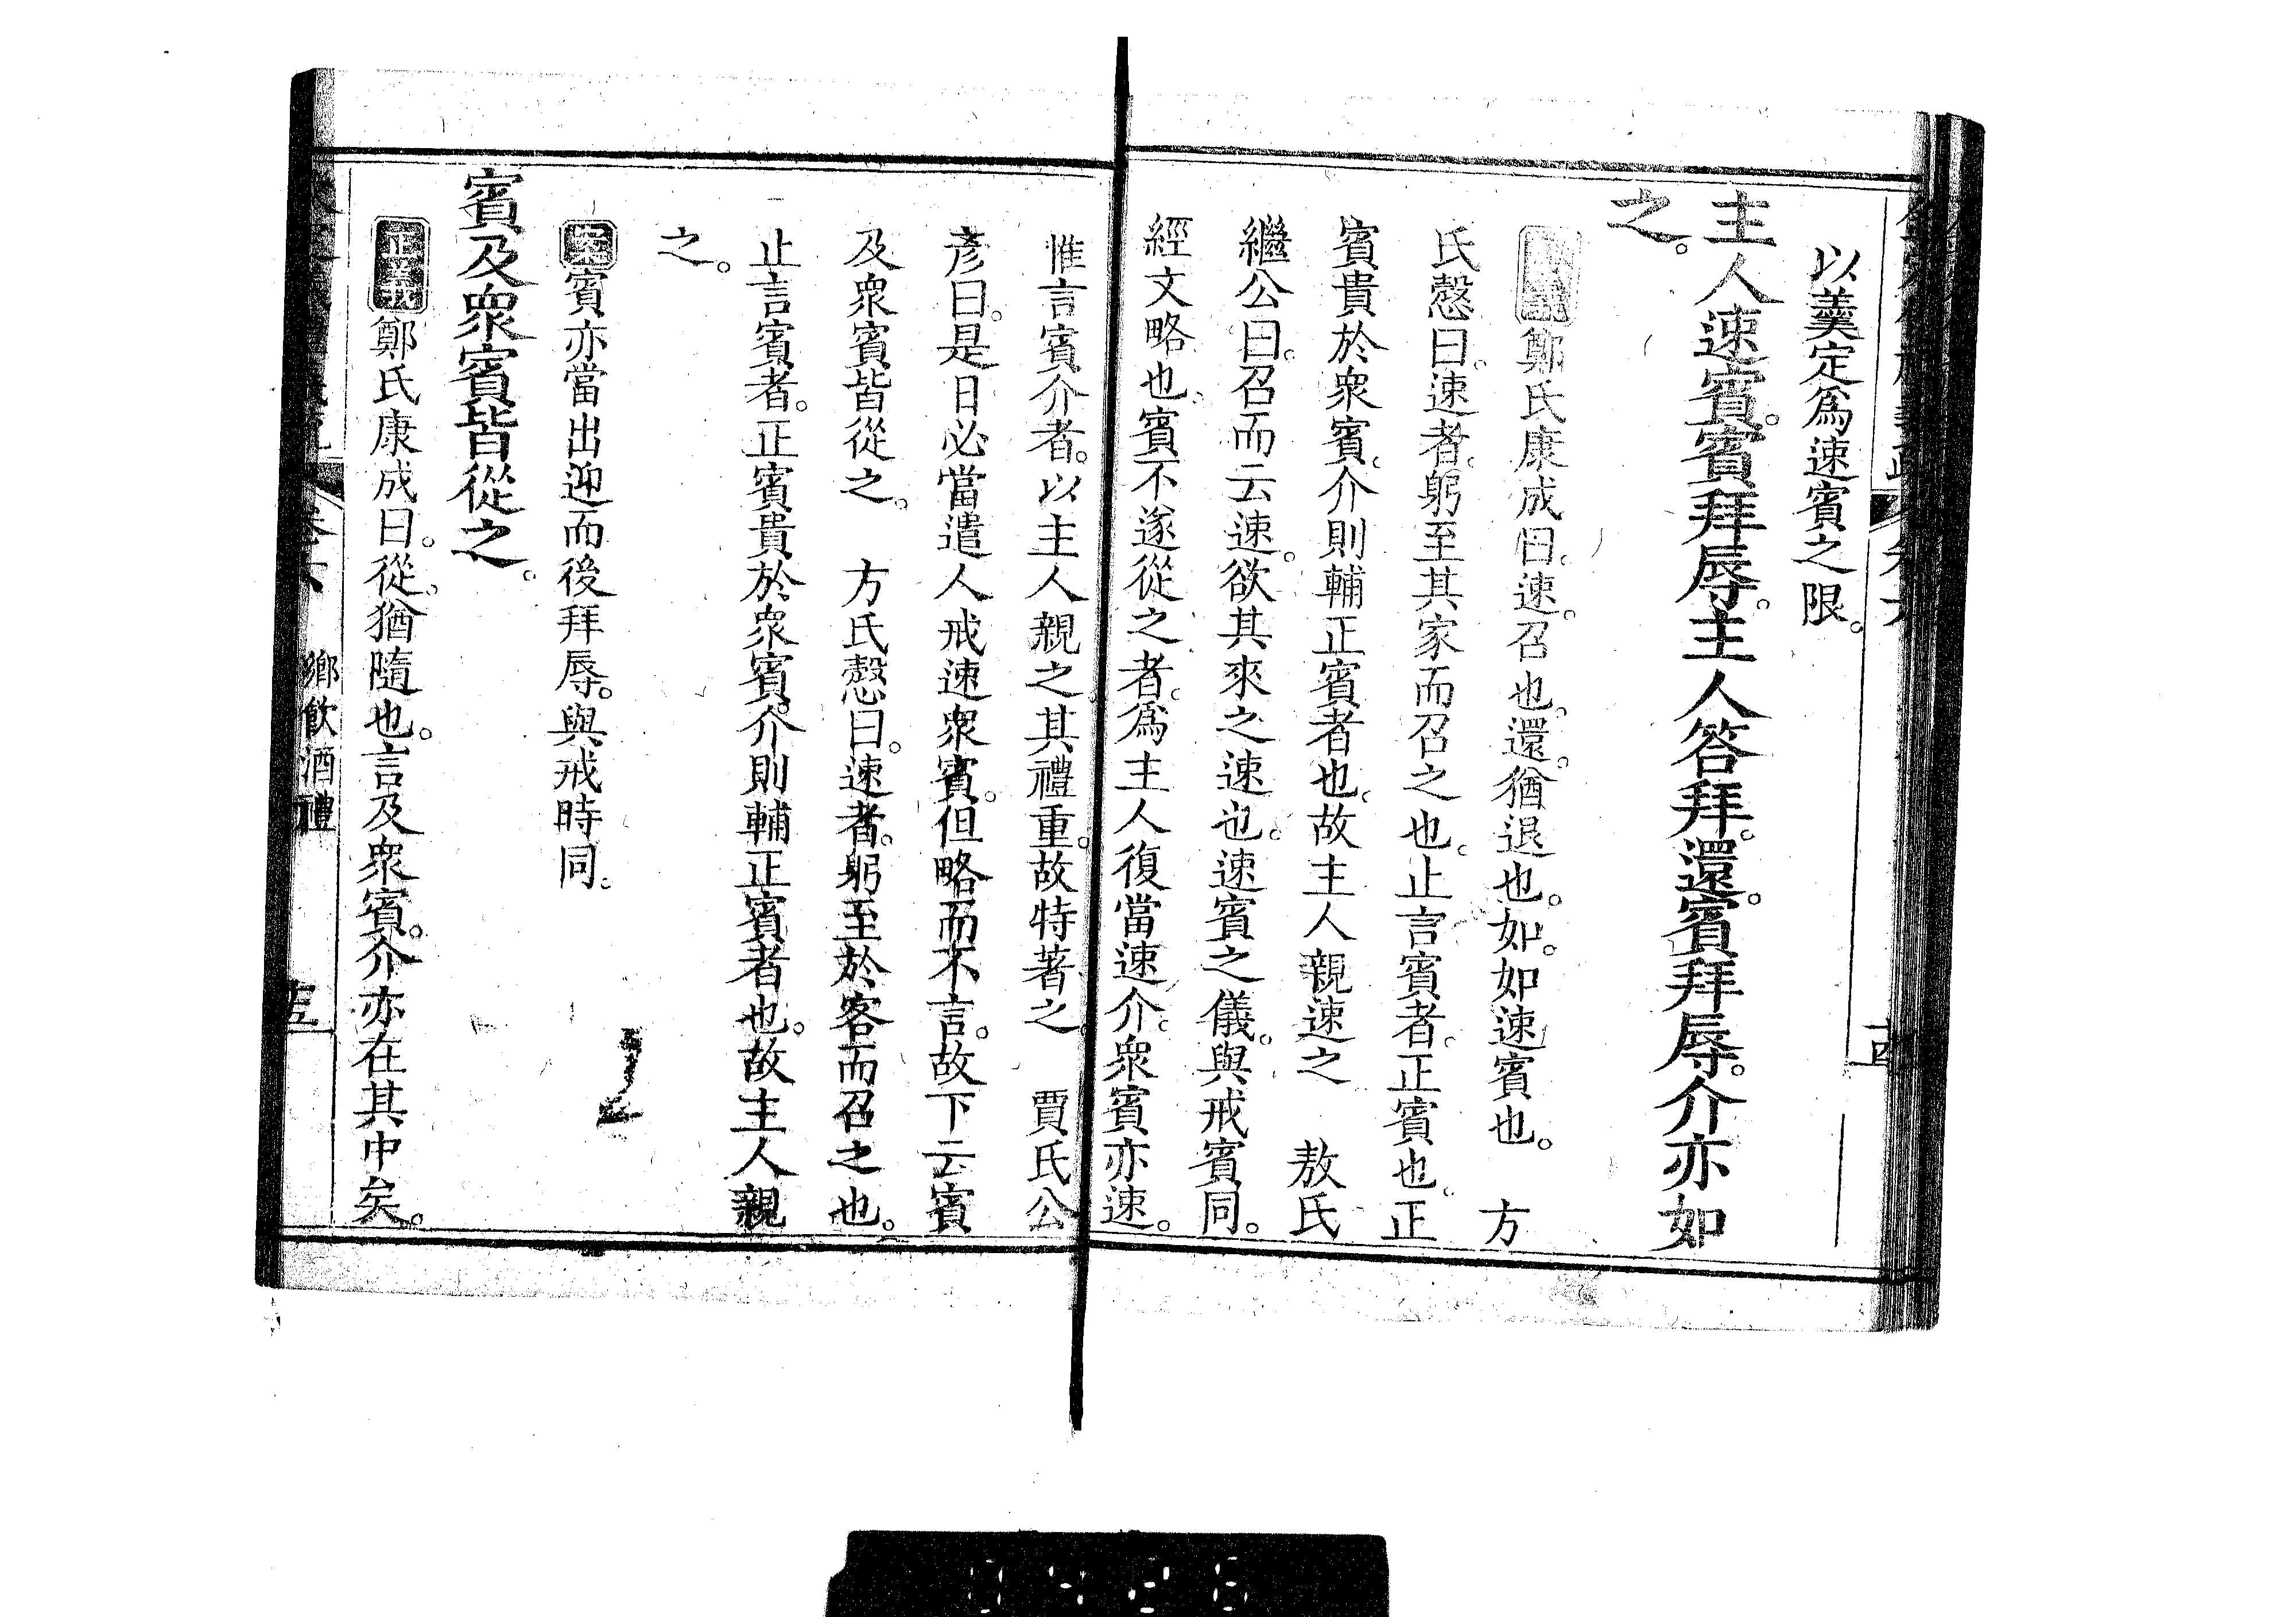 以羹定爲速賓之限。
主人速賓。賓拜辱。主人答拜。還。賓拜辱。介亦如
之。
鄭氏康成曰。速。召也。還。猶退也。如。如速賓也。　方
氏慤曰。速者。躬至其家而召之也。止言賓者。正賓也。正
賓貴於衆賓。介則輔正賓者也。故主人親速之　敖氏
繼公曰。召而云速。欲其來之速也。速賓之儀。與戒賓同。
經文略也。賓不遂從之者。爲主人復當速介。衆賓亦速。
惟言賓介者。以主人親之其禮重。故特著之。　賈氏公
彥曰。是日必當遣人戒速衆賓。但略而不言。故下云賓
及衆賓皆從之。　方氏慤曰。速者。躬至於客而召之也。
止言賓者。正賓貴於衆賓。介則輔正賓者也。故主人親
之。
案賓亦當出迎而後拜辱。與戒時同。
賓及衆賓皆從之。
正義鄭氏康成曰。從。猶隨也。言及衆賓。介亦在其中矣。
鄉飲酒禮